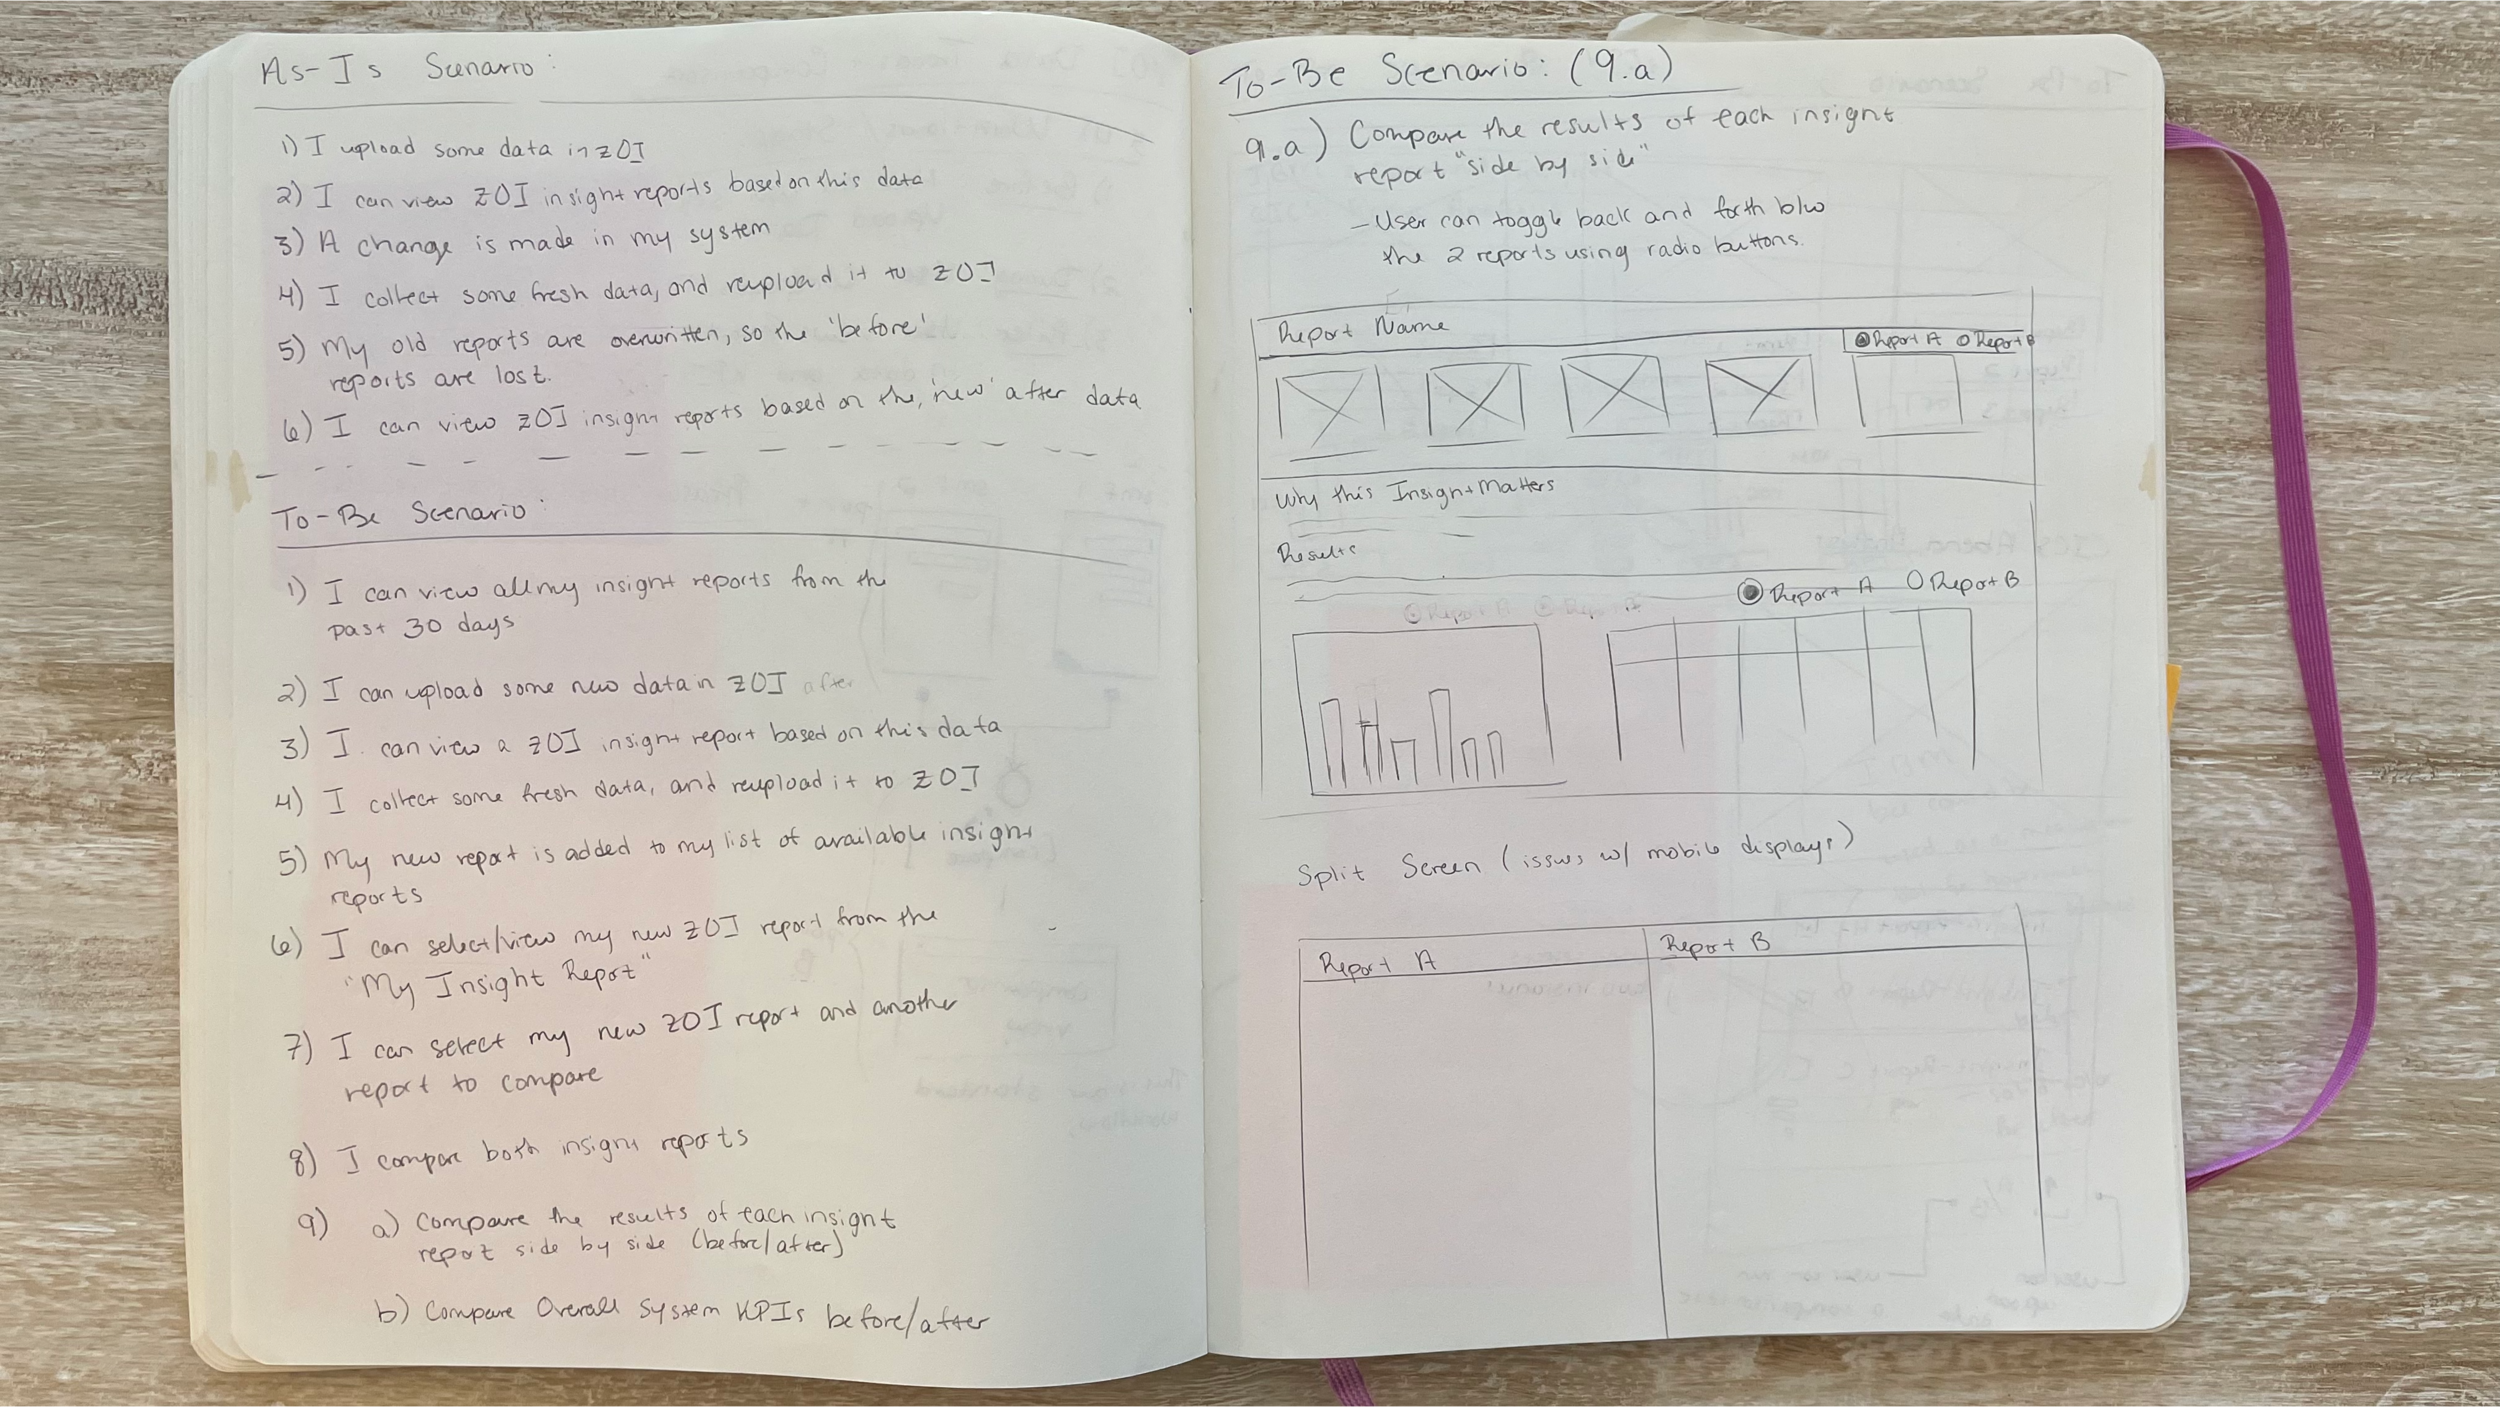 As-Is Scenario:
1) I upload some data in zOI
2) I can view zOI insight reports based on this data
3) A change is made in my system
4) I collect some fresh data, and reupload it to zOI
5) My old reports are overwritten, so the 'before'
reports are lost.
6) I can view zOI insight reports based on the, 'new' after data
To-Be Scenario:
1) I can view all my insight reports from the
past 30 days
2) I can upload some new data in zOI after
3) I can view a zOI insight report based on this data
4) I collect some fresh data, and reupload it to zOI
5) My new report is added to my list of available insight
reports
6) I can select/view my new zOI report from the
"My Insight Report"
7) I can select my new zOI report and another
report to compare
8) I compare both insight reports
9) a) Compare the results of each insight
report side by side (before/after)
b) Compare Overall System KPIs before/after
To-Be Scenario: (9.a)
9.a) Compare the results of each insight
report "side by side"
- User can toggle back and forth b/w
the 2 reports using radio buttons.
Report Name
Report A Report B
Why this Insight Matters
Results
Report A Report B
Report A Report B
Split Screen (issues w/ mobile displays)
Report A Report B